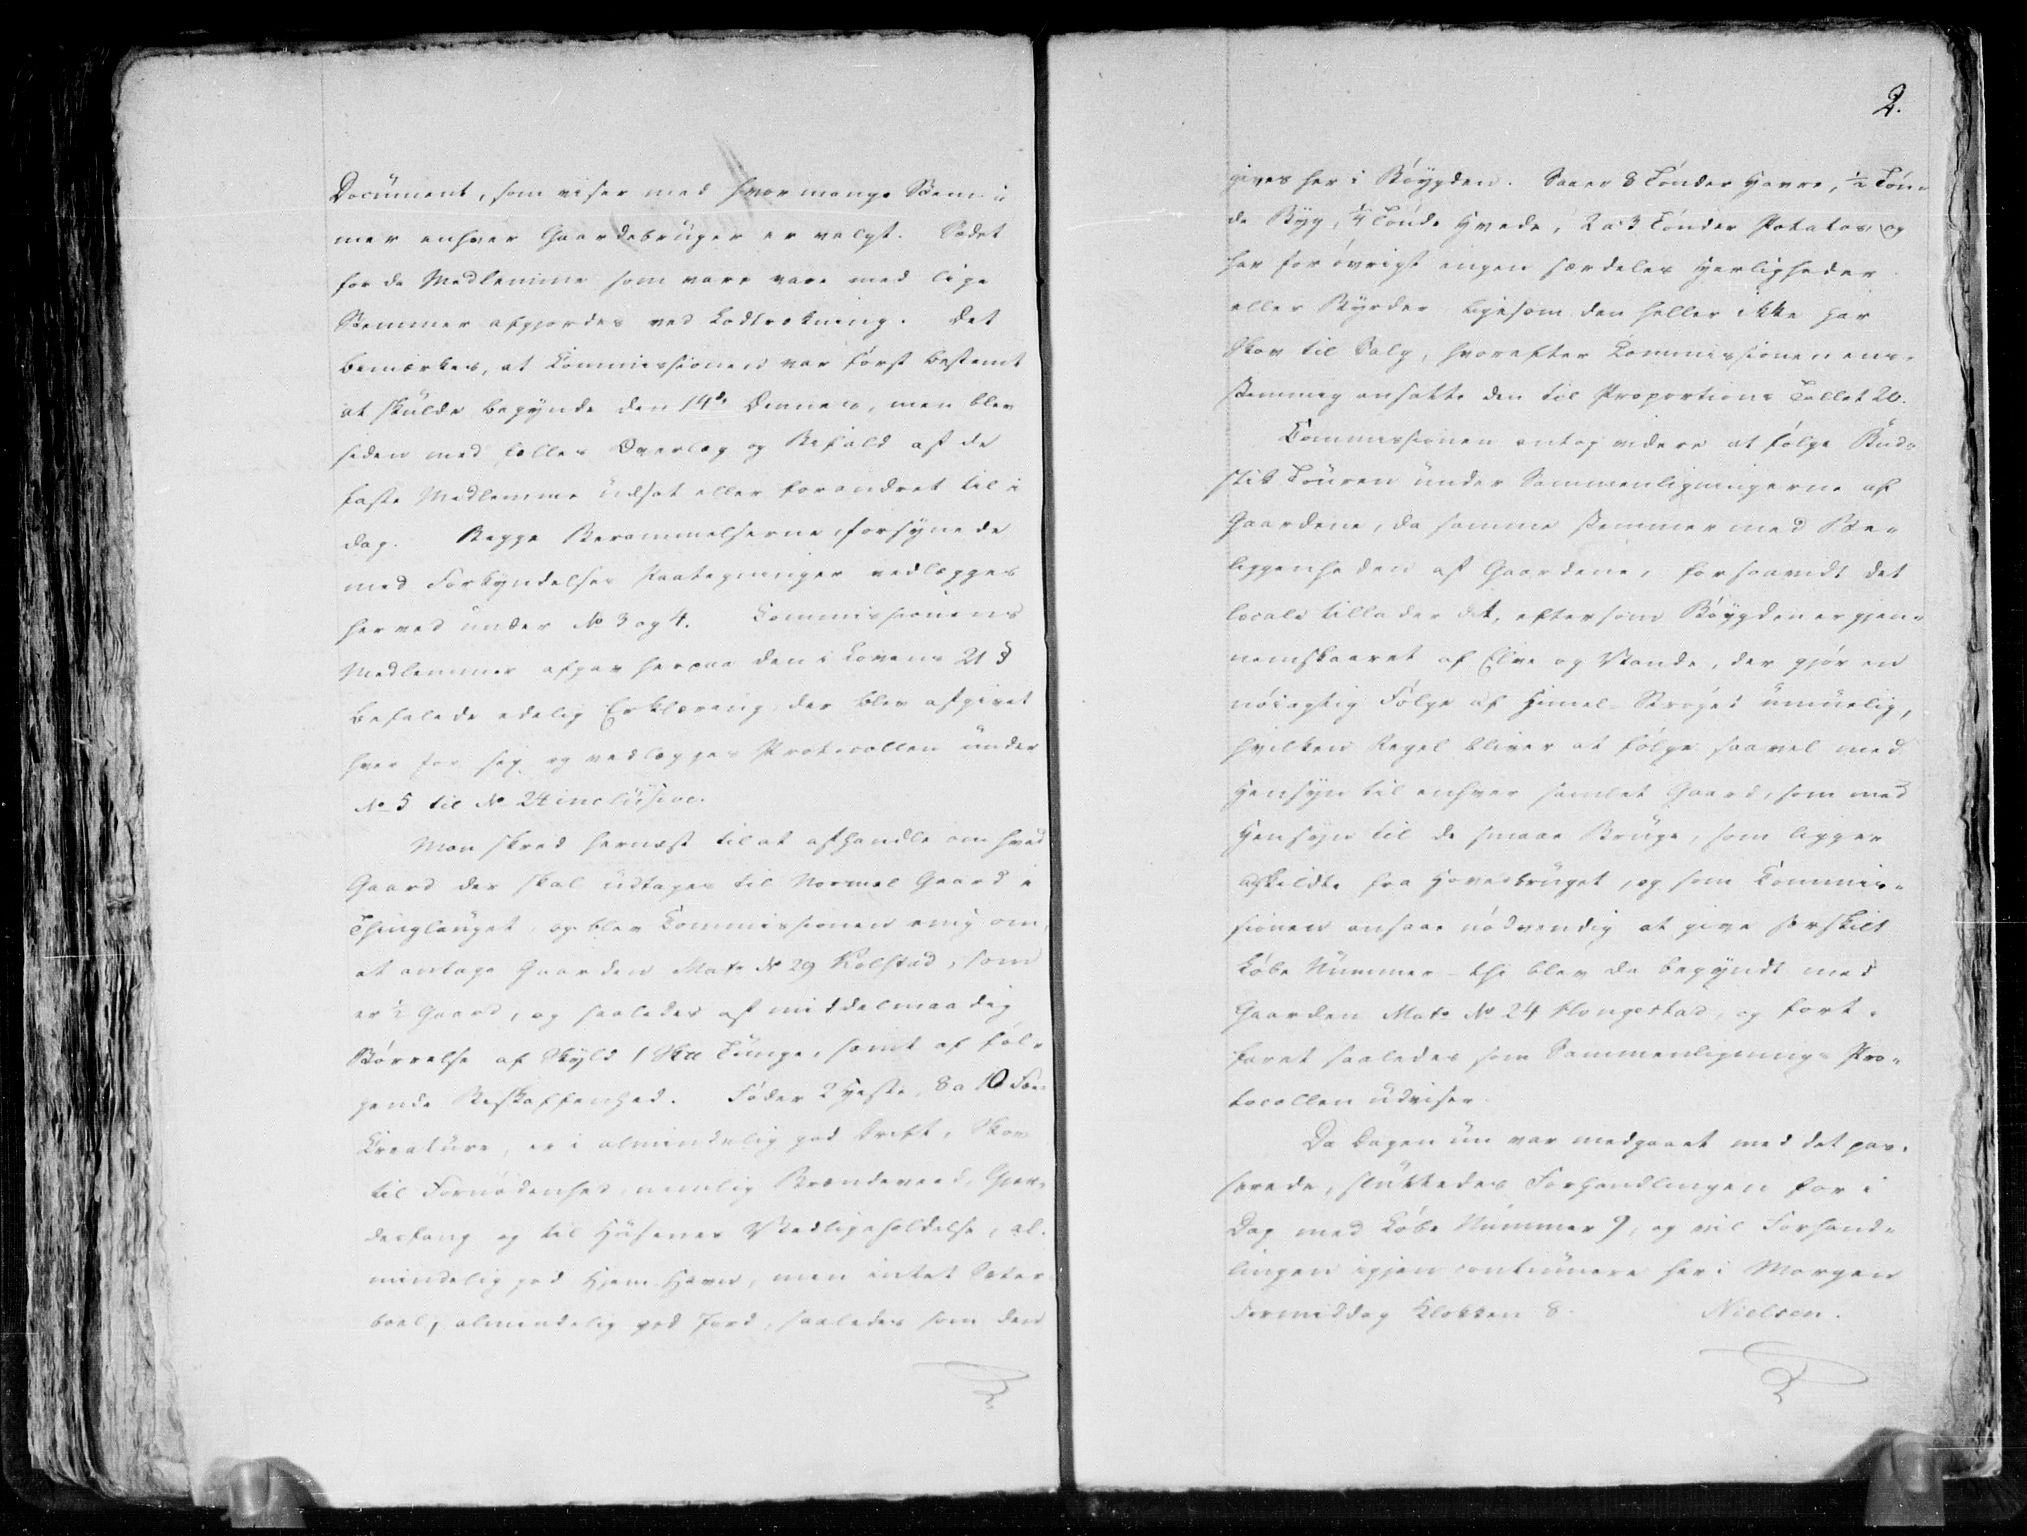 Document, som viser med hvor mange Stem-
mer enhver Gaardebruger er valgt. Sædet
for de Medlemme som vare med lige
Stemmer afgjordes ved Lodtrækning. Det
bemærkes, at Commissionen var først bestemt
at skulde begynde den 14de Dennes, men blev
siden med fælles Overlæg og Bifald af de
faste Medlemme udsat eller forandret til i
dag. Begge Berammelserne forsynede
med Forkyndelses Paategninger vedlægges
herved under No 3 og 4. Commissionens
Medlemmer afgav herpaa den i Lovens 21 §
befalede edelig Erklæring, der blev afgivet
hver for sig og vedlægges Protocollen under
No 5 til No 24 inclusive.
Man skred hernæst til at afhandle om hvad
Gaard der skal udtages til Normal Gaard i
Thinglauget, og blev Commissionen enig om,
at antage Gaarden Matr No 29 Kolstad, som
er ½ Gaard, og saaledes af middelmaadig
Størrelse af Skyld 1 Sk℔ Tunge, samt af føl-
gende Beskaffenhed. Føder 2 Heste, 8 a 10 Fæ-
Creature, er i almindelig god Drift, Skov
til Fornødenhed, nemlig Brændeveed, Gjær-
desfang og til Husenes Vedligeholdelse, al-
mindelig god Hjem-Havn, men intet Sæter-
boel, almindelig god Jord, saaledes som den
2.
gives her i Bøygden. Saaer 8 Tønder Havre, ½ Tøn-
de Byg, ¼ Tønde Hvede, 2 a 3 Tønder Potatos og
har for øvrigt ingen særdeles Herligheder
eller Byrder ligesom den heller ikke har
Skov til Salg, hvorefter Commissionen een-
stemmig ansatte den til Proportions Tallet 20.
Commissionen antog videre at følge Bud-
stik Touren under Sammenligningerne af
Gaardene, da samme stemmer med Be-
liggenheden af Gaardene, forsaavidt det
locale tillader det, eftersom Bøygden er gjen-
nemskaaret af Elve og Vande, der gjør en
nøiagtig Følge af Himmel-Strøget umuelig,
hvilken Regel bliver at følge saavel med
Hensyn til enhver samlet Gaard, som med
Hensyn til de smaae Bruge, som ligger
adskildte fra Hovedbruget, og som Commis-
sionen ansaae nødvendig at give særskilt
Løbe Nummer - thi blev da begyndt med
Gaarden Matr No 24 Hongestad, og fort-
faret saaledes som Sammenlignings Pro-
tocollen udviser.
Da Dagen nu var medgaaet med det pas-
serede, sluttedes Forhandlingen for i
Dag med Løbe Nummer 9, og vil Forhand-
lingen igjen continuere her i Morgen
Formiddag Klokken 8.
Nielsen.